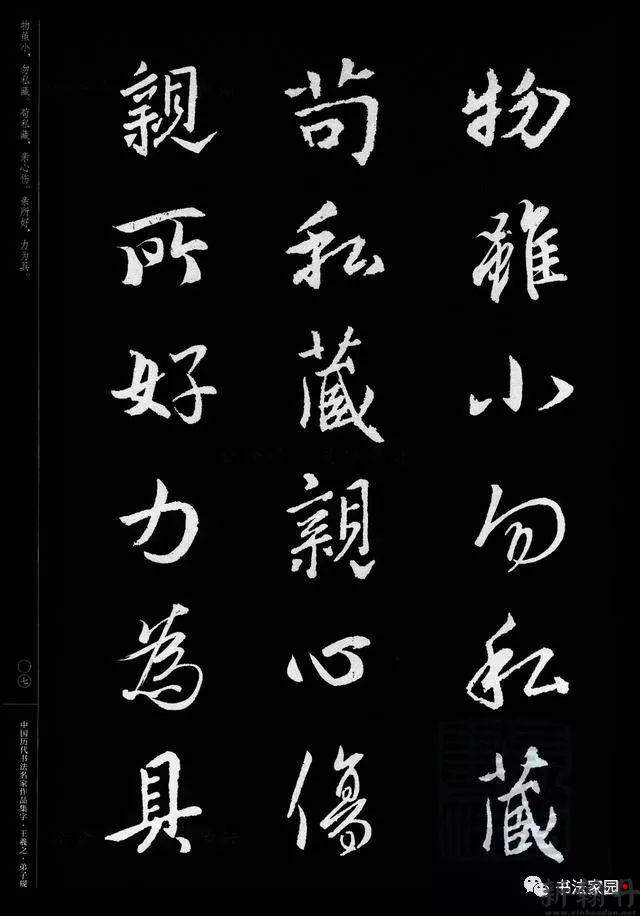 物雖小勿私藏
苟私藏親心傷
親所好力為具
物虽小，勿私藏。苟私藏，亲心伤。亲所好，力为具。
〇七
中国历代书法名家作品集字·王羲之·弟子规
书法家园
新翰丹
www.xinhandan.net